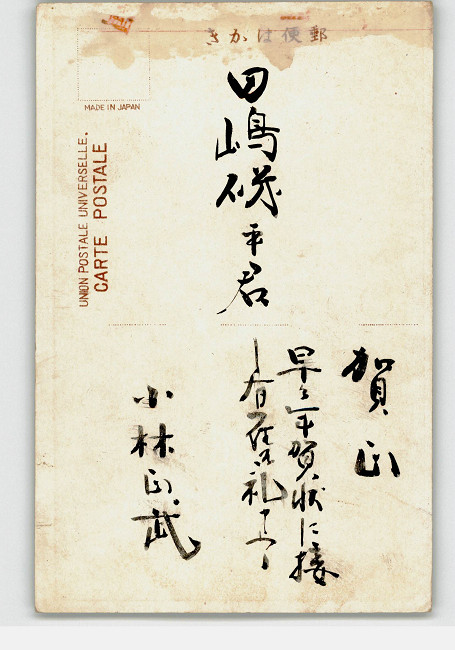 きかは便郵
MADE IN JAPAN
UNION POSTALE UNIVERSELLE.
CARTE POSTALE
田嶋磯平君
賀正
早々年賀状に接し
小林正武